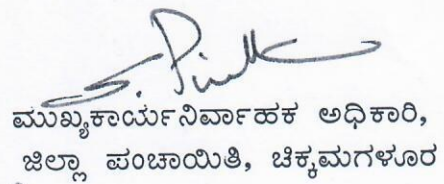 ಮುಖ್ಯಕಾರ್ಯನಿರ್ವಾಹಕ ಅಧಿಕಾರಿ,
ಜಿಲ್ಲಾ ಪಂಚಾಯಿತಿ, ಚಿಕ್ಕಮಗಳೂರ